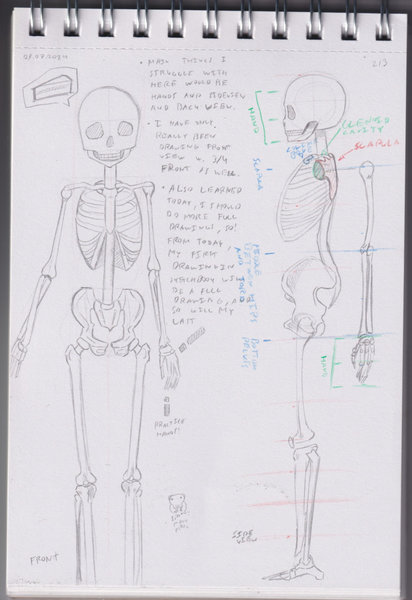 2/3
• MAIN THINGS I
STRUGGLE WITH
HERE WOULD BE
HANDS AND
AND BACK VIEW.
• I HAVE ONLY
REALLY BEEN
DRAWING FRONT
VIEW W. 3/4
FRONT AS WELL.
• ALSO LEARNED
TODAY, I SHOULD
DO MORE FULL
DRAWINGS, SO!
FROM TODAY,
MY FIRST
DRAWING IN
SKETCHBOOK WILL
BE A FULL
DRAWING, AND
SO WILL MY
LAST
PRACTICE
HANDS!
FRONT
HAND
GLENOID
CAVITY
SCAPULA
SCAPULA
BOTTOM
PELVIS
HAND
SIDE
VIEW